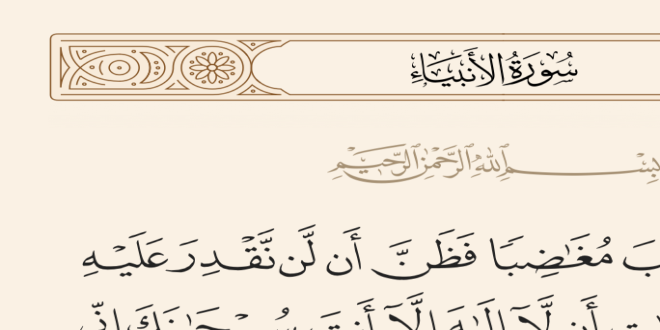 سُورَةُ الأَنبِيَاءِ
بِسْمِ ٱللَّهِ ٱلرَّحْمَٰنِ ٱلرَّحِيمِ
مُغَٰضِبًا فَظَنَّ أَن لَّن نَّقْدِرَ عَلَيْهِ
أَن لَّآ إِلَٰهَ إِلَّآ أَنتَ سُبْحَٰنَكَ إِنِّي